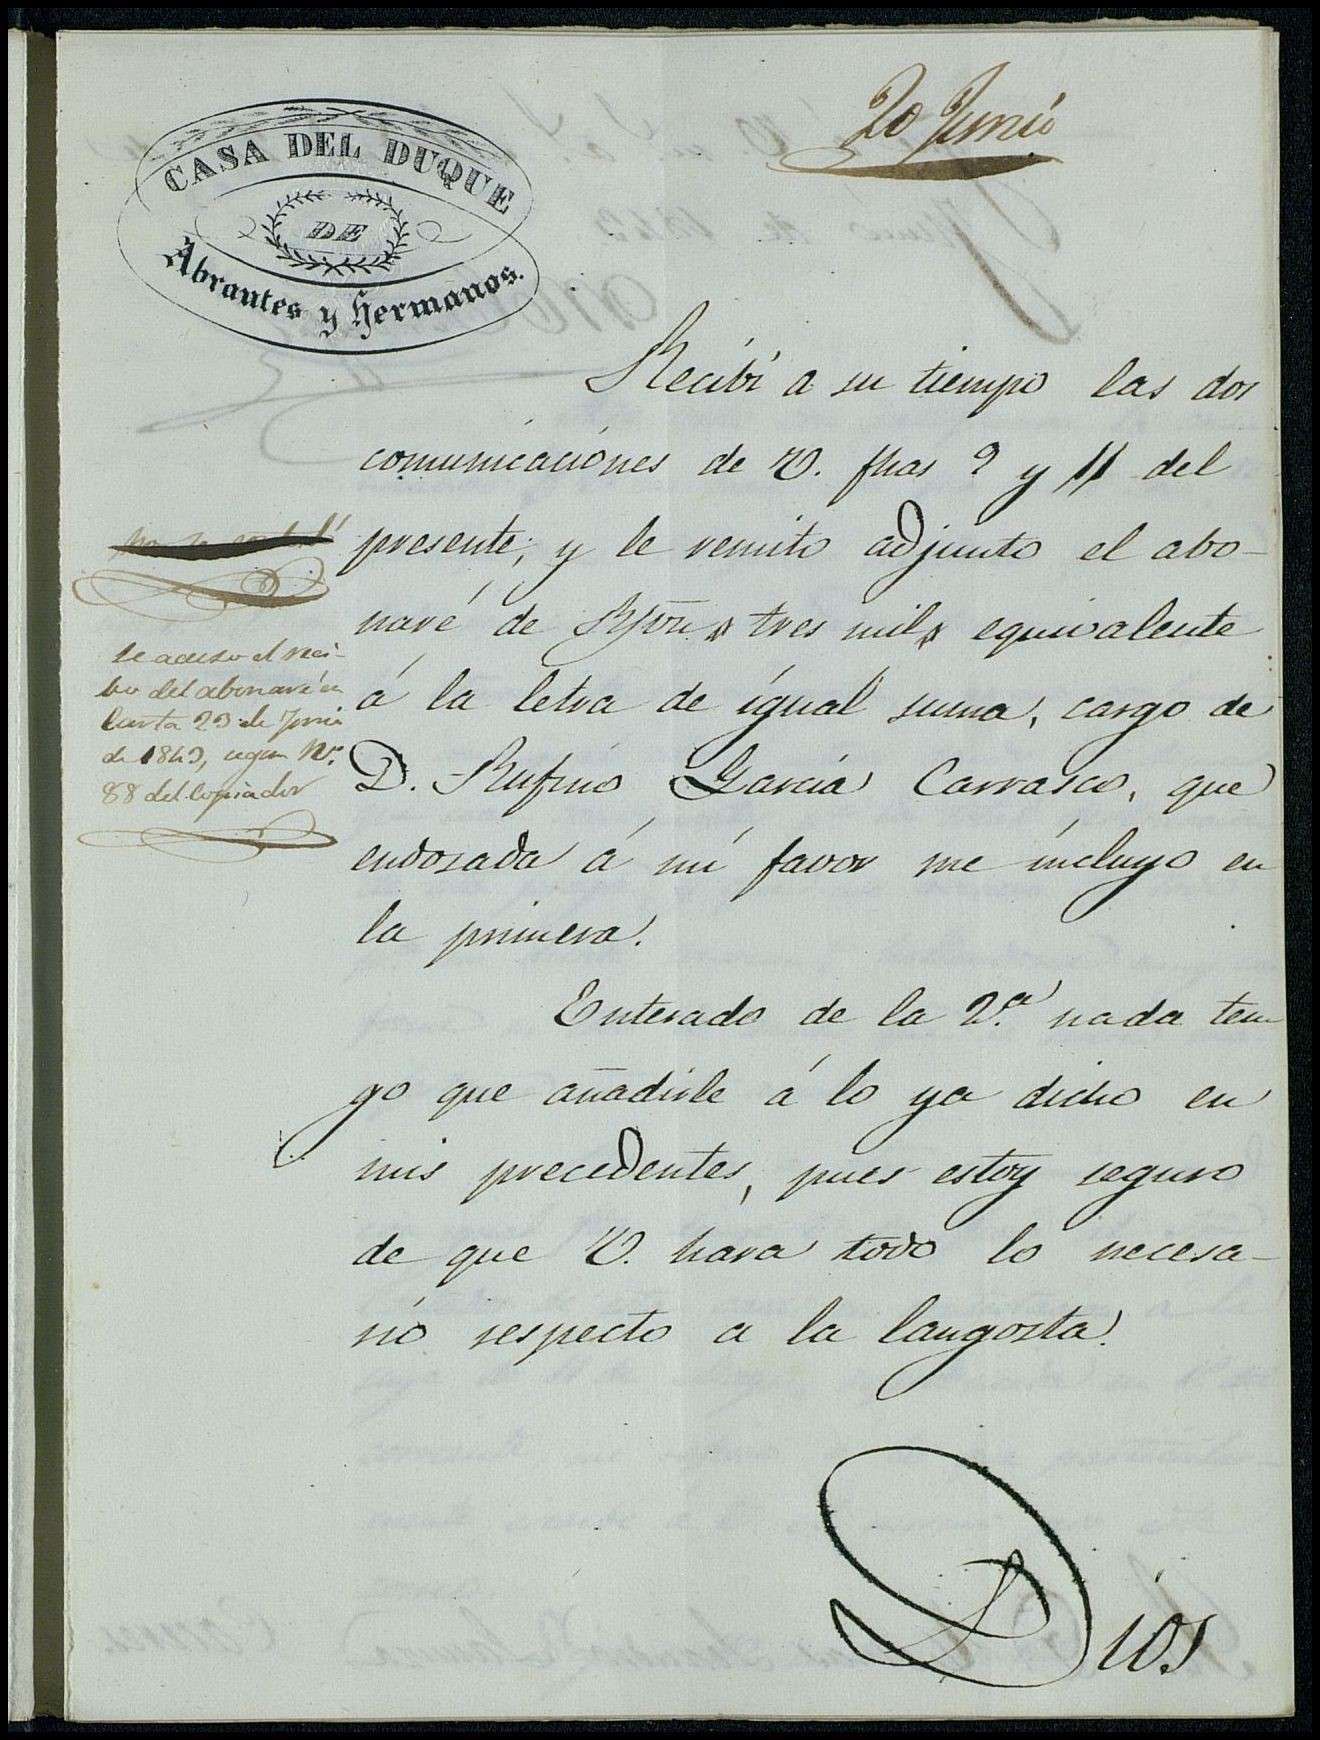 20 Junio
CASA DEL DUQUE
DE
Abrantes y Hermanos.
Recibí a su tiempo las dos
comunicaciones de V. fhas 9 y 11 del
presente, y le remito adjunto el abo-
naré de Rsvon tres mil equivalente
á la letra de igual suma, cargo de
D. Rufino García Carrasco, que
endosada á mi favor me incluyo en
la primera.
Enterado de la 2.ª nada ten-
go que añadirle á lo ya dicho en
mis precedentes, pues estoy seguro
de que V. hara todo lo necesa-
rio respecto a la langosta.
Dios
se acuso el reci-
bo del abonaré en
Carta 23 de Junio
de 1843, segun Nº.
88 del Copiador